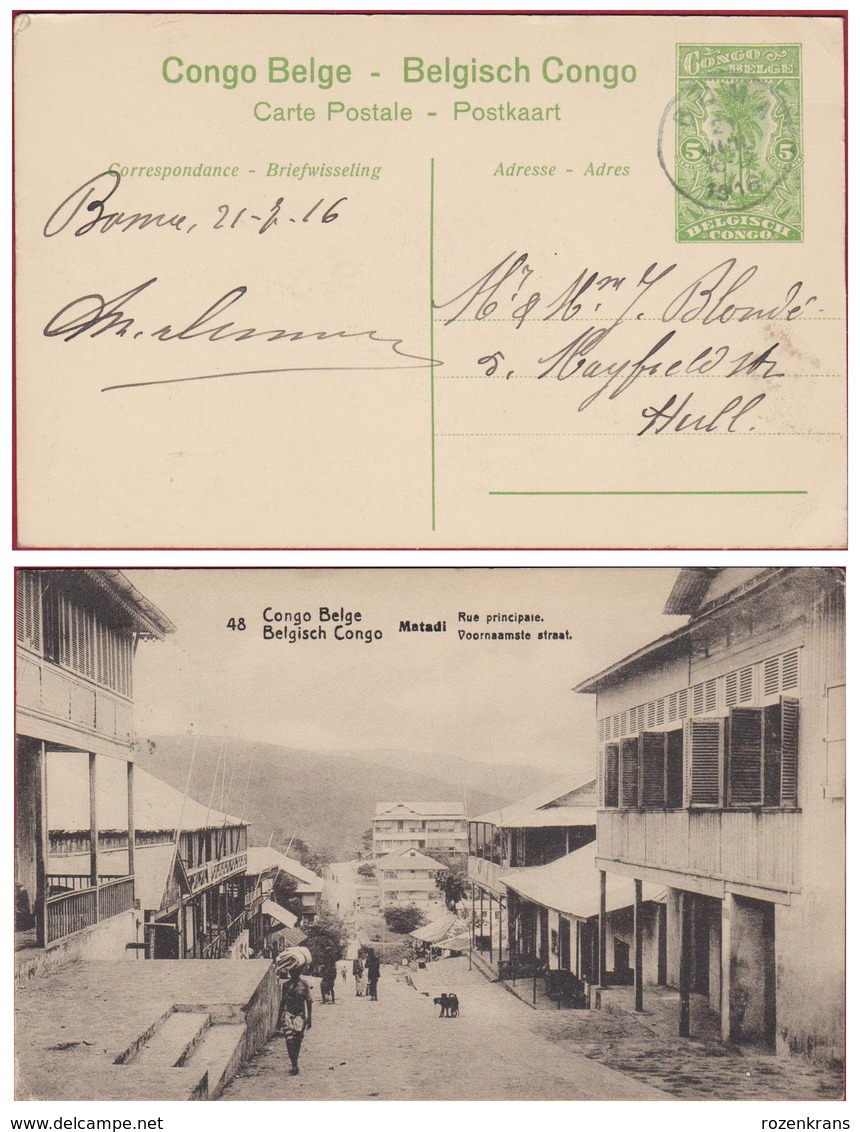 Congo Belge - Belgisch Congo
Carte Postale - Postkaart
CONGO BELGE
5 5
BELGISCH CONGO
BOMA
21
JUIL
1916
Correspondance - Briefwisseling
Adresse - Adres
Boma, 21-7-16
Mr & Mm J. Blondé
5. Mayfield str
Hull.
48 Congo Belge
Belgisch Congo
Matadi
Rue principale.
Voornaamste straat.
delcampe.net
rozenkrans